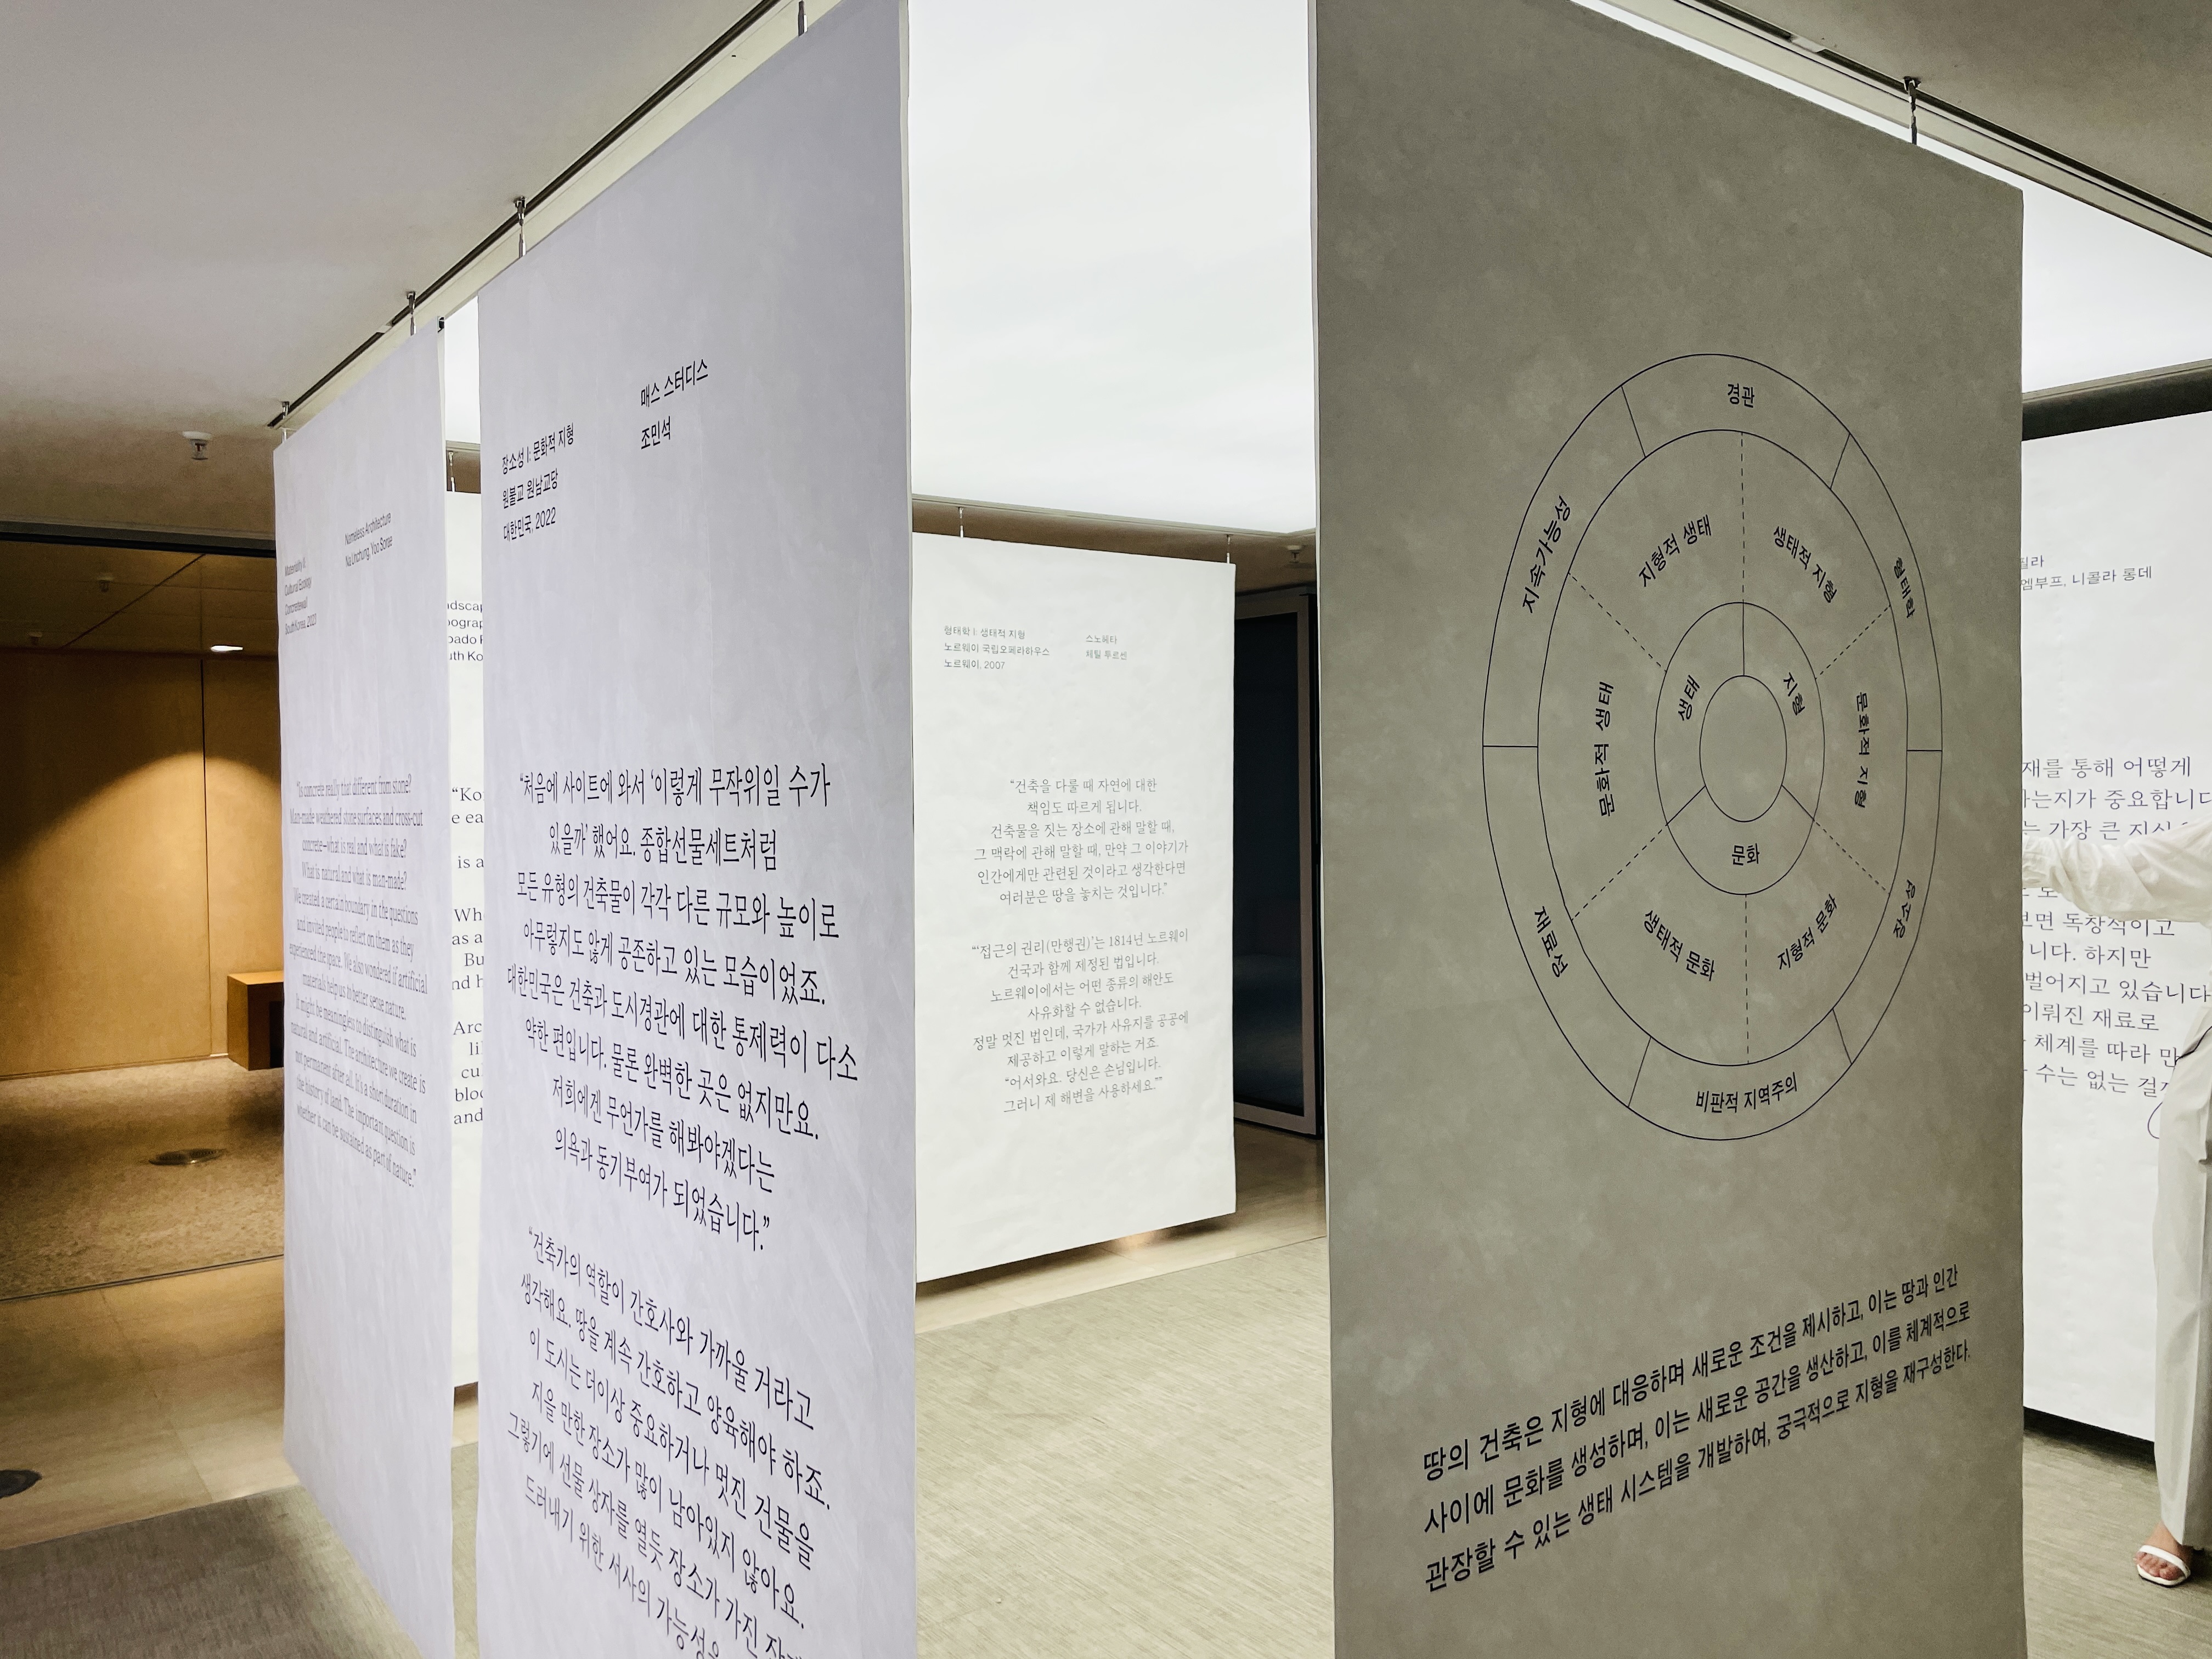 Nameless Architecture
Na Unchung, Yoo Sorae
Materiality II:
Cultural Ecology
Concretewall
South Korea, 2023
"Is concrete really that different from stone?
Man-made weathered stone surfaces and cross-cut
concrete—what is real and what is fake?
What is natural and what is man-made?
We created a certain boundary in the questions
and invited people to reflect on them as they
experienced the space. We also wondered if artificial
materials help us to better sense nature.
It might be meaningless to distinguish what is
natural and artificial. The architecture we create is
not permanent after all. It's a short duration in
the history of land. The important question is
whether it can be sustained as part of nature."
"Ko
e ea
is a
Who
as a
Bu
nd h
Arc
li
cu
bloc
and
매스 스터디스
조민석
장소성 I: 문화적 지형
원불교 원남교당
대한민국, 2022
“처음에 사이트에 와서 ‘이렇게 무작위일 수가
있을까’ 했어요. 종합선물세트처럼
모든 유형의 건축물이 각각 다른 규모와 높이로
아무렇지도 않게 공존하고 있는 모습이었죠.
대한민국은 건축과 도시경관에 대한 통제력이 다소
약한 편입니다. 물론 완벽한 곳은 없지만요.
저희에겐 무언가를 해봐야겠다는
의욕과 동기부여가 되었습니다.”
“건축가의 역할이 간호사와 가까울 거라고
생각해요. 땅을 계속 간호하고 양육해야 하죠.
이 도시는 더이상 중요하거나 멋진 건물을
지을 만한 장소가 많이 남아있지 않아요.
그렇기에 선물 상자를 열듯 장소가 가진
드러내기 위한 서사의 가능성을
형태학 I: 생태적 지형
노르웨이 국립오페라하우스
노르웨이, 2007
스노헤타
쉐틸 투르센
“건축을 다룰 때 자연에 대한
책임도 따르게 됩니다.
건축물을 짓는 장소에 관해 말할 때,
그 맥락에 관해 말할 때, 만약 그 이야기가
인간에게만 관련된 것이라고 생각한다면
여러분은 땅을 놓치는 것입니다.”
“‘접근의 권리(만행권)’는 1814년 노르웨이
건국과 함께 제정된 법입니다.
노르웨이에서는 어떤 종류의 해안도
사유화할 수 없습니다.
정말 멋진 법인데, 국가가 사유지를 공공에
제공하고 이렇게 말하는 거죠.
“어서와요. 당신은 손님입니다.
그러니 제 해변을 사용하세요.””
경관
형태학
장소성
비판적 지역주의
재료성
지속가능성
지형적 생태
생태적 지형
문화적 지형
지형적 문화
생태적 문화
문화적 생태
생태
지형
문화
땅의 건축은 지형에 대응하며 새로운 조건을 제시하고, 이는 땅과 인간
사이에 문화를 생성하며, 이는 새로운 공간을 생산하고, 이를 체계적으로
관장할 수 있는 생태 시스템을 개발하여, 궁극적으로 지형을 재구성한다.
필라
엠부프, 니콜라 롱데
재를 통해 어떻게
는지가 중요합니다
는 가장 큰 지식
보면 독창적이고
니다. 하지만
벌어지고 있습니다
이뤄진 재료로
체계를 따라 만
수는 없는 걸